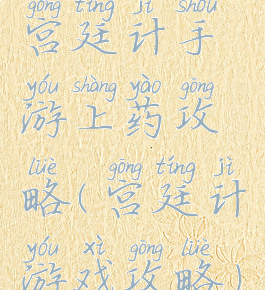 gōng tíng jì shǒu
宫廷计手
yóu shàng yào gōng
游上药攻
lüè gōng tíng jì
略(宫廷计
yóu xì gōng lüè
游戏攻略)